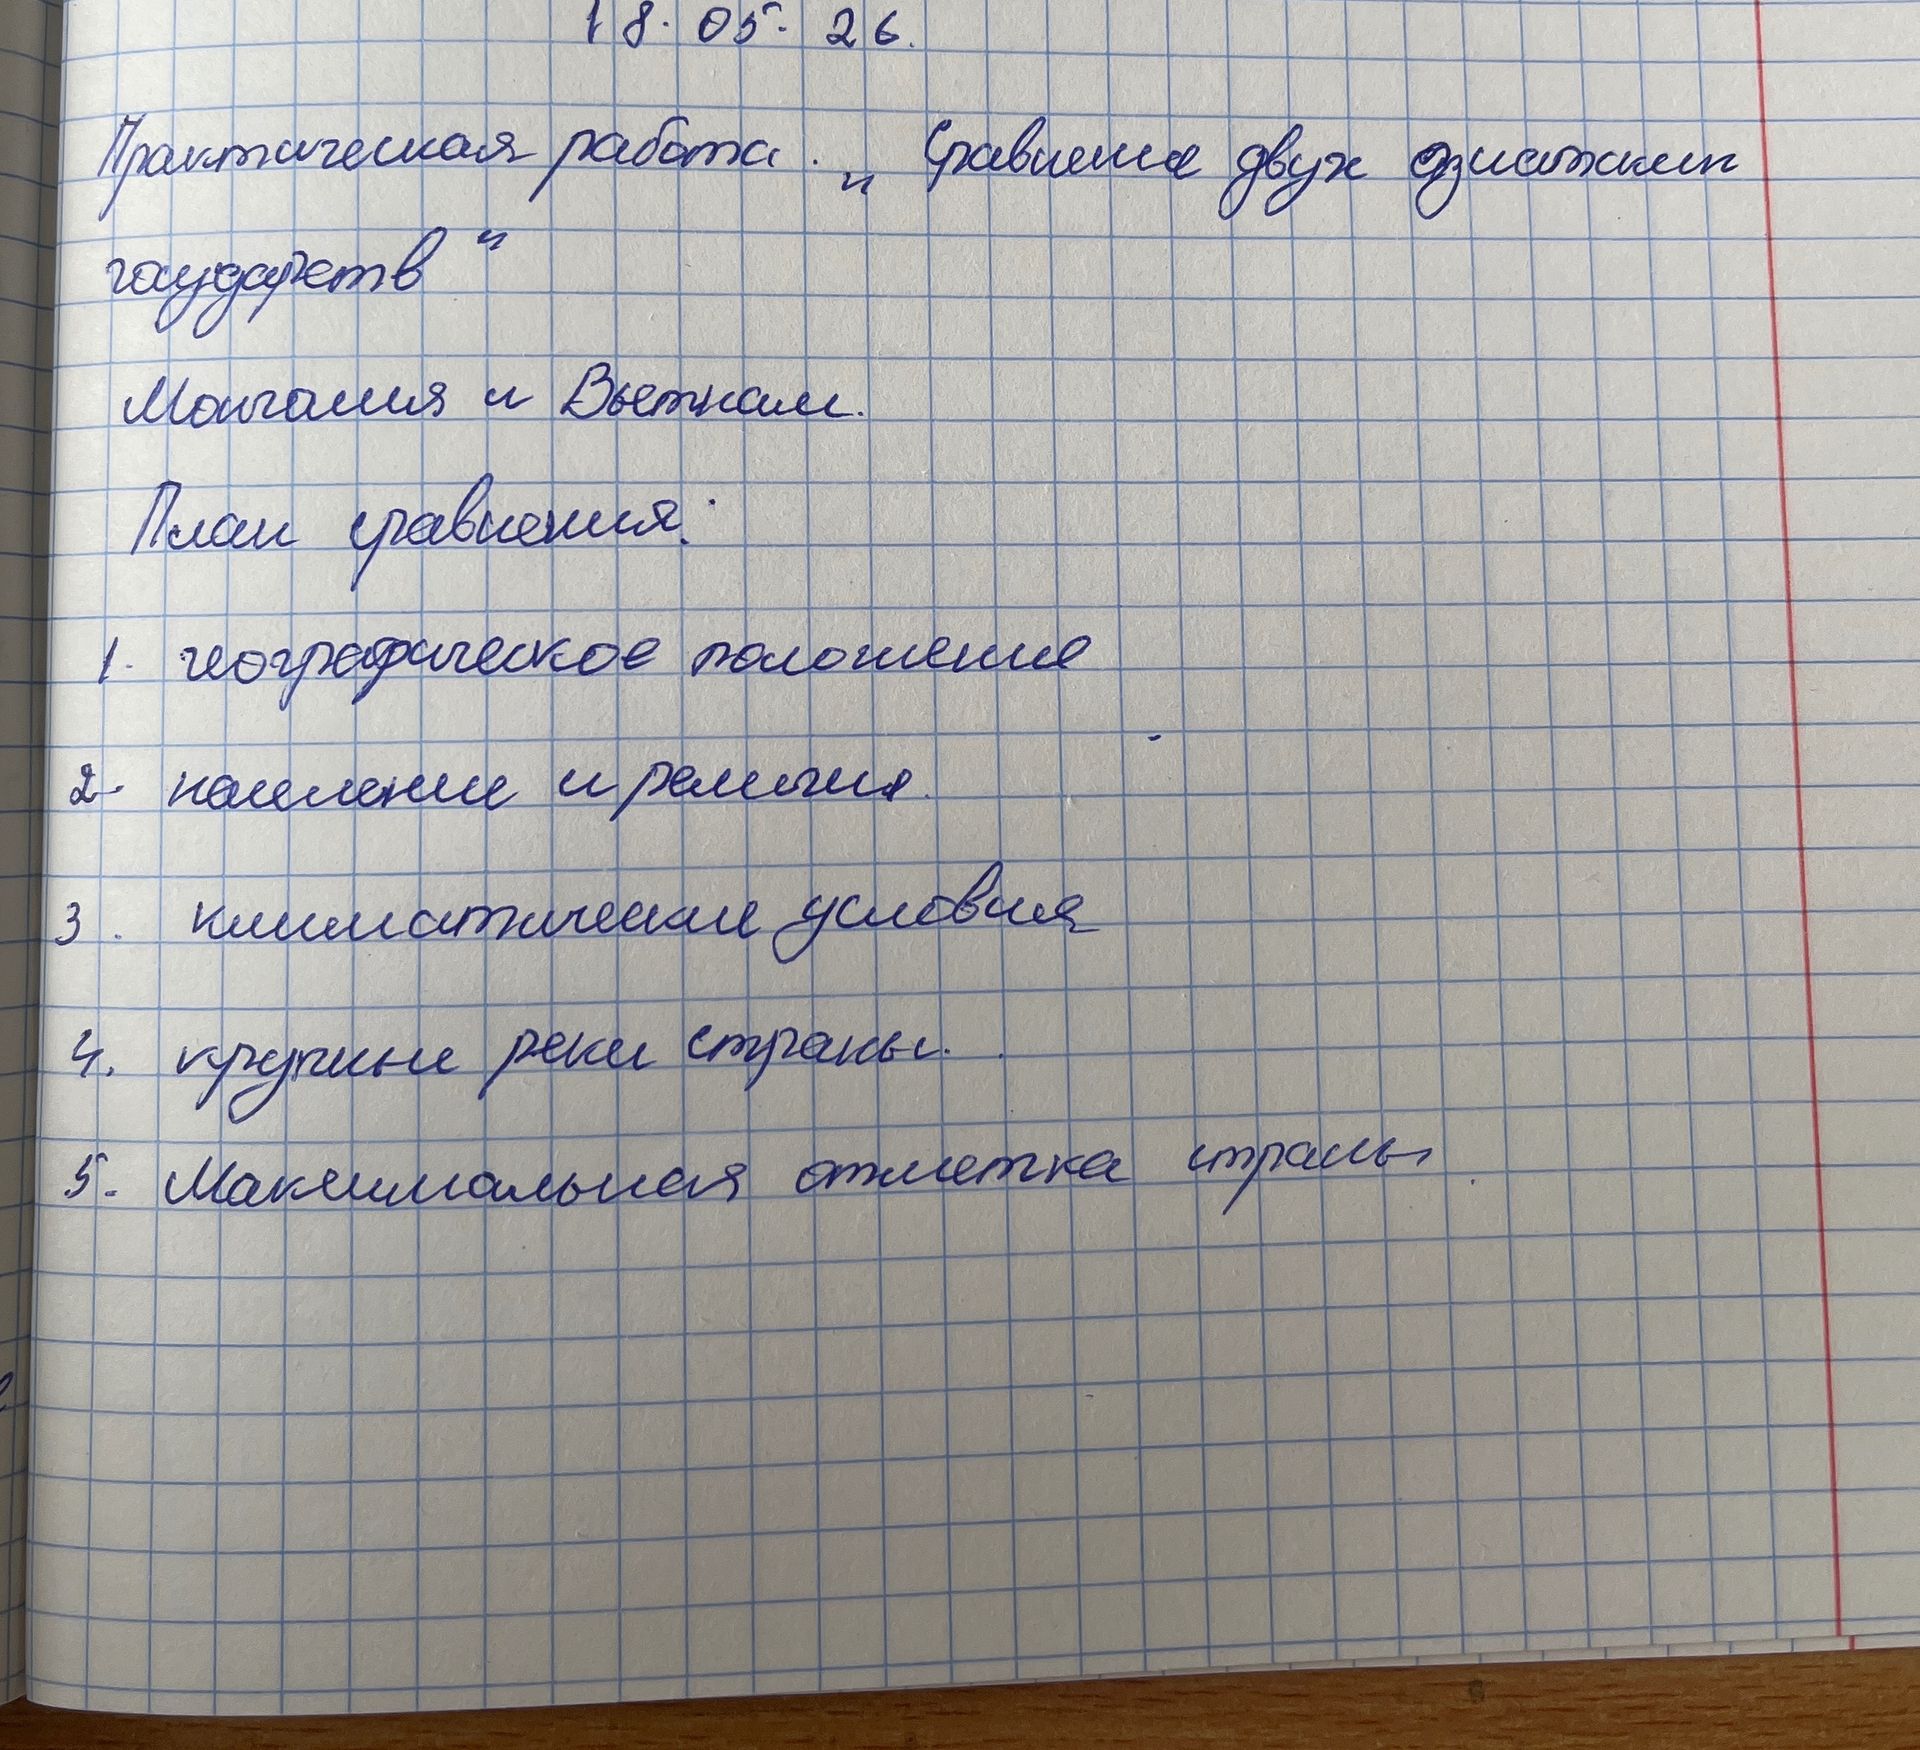 18. 05. 26.
Практическая работа. „Сравнение двух азиатских
государств“
Монголия и Вьетнам.
План сравнения:
1. географическое положение
2. население и религия.
3. климатические условия
4. крупные реки страны.
5. Максимальная отметка страны